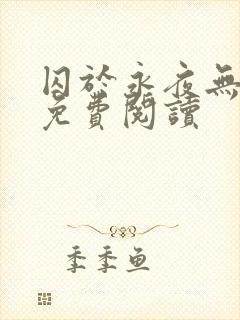 囚於永夜無
免費閱讀
季季鱼